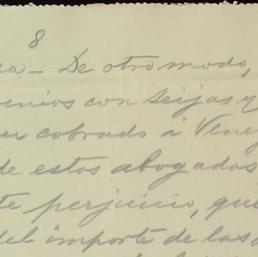 8
De otro modo,
con Seijas y
cobrado á
de estos abogados
perjuicio, que
del importe de las